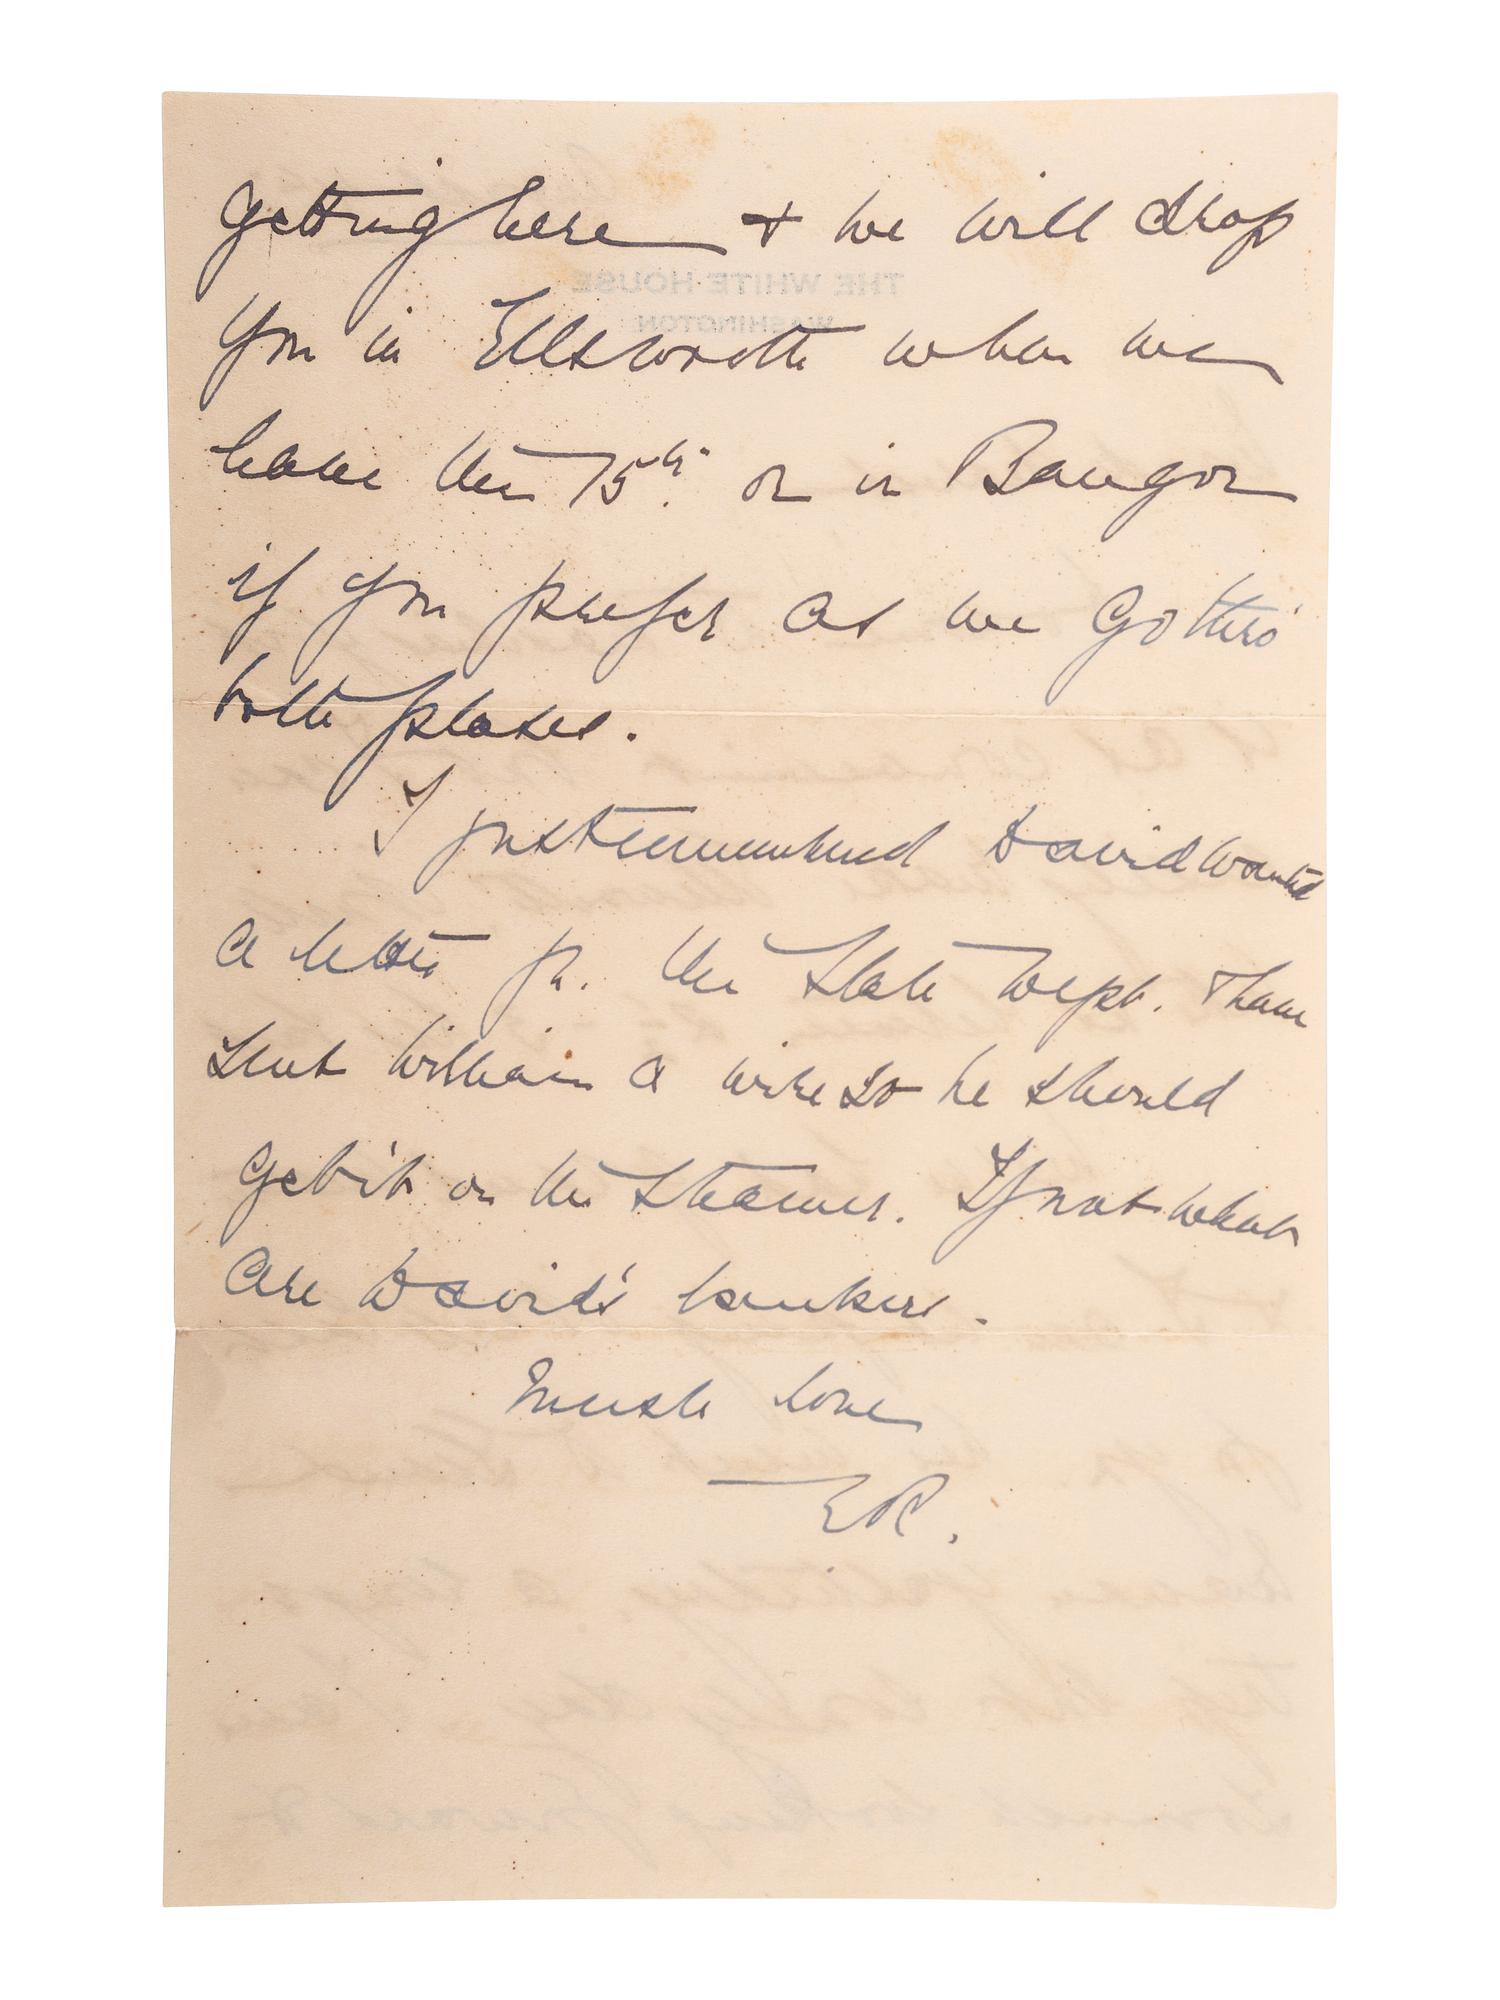 getting here + we will drop
you in Ellsworth when we
leave the 15th. or in Bangor
if you prefer as we go thro'
both places.
I just remembered David wanted
a letter fr. the State Dept. + have
sent William a wire so he should
get it on the steamer. If not what
are David's bankers.
Much love
ER.
THE WHITE HOUSE
WASHINGTON